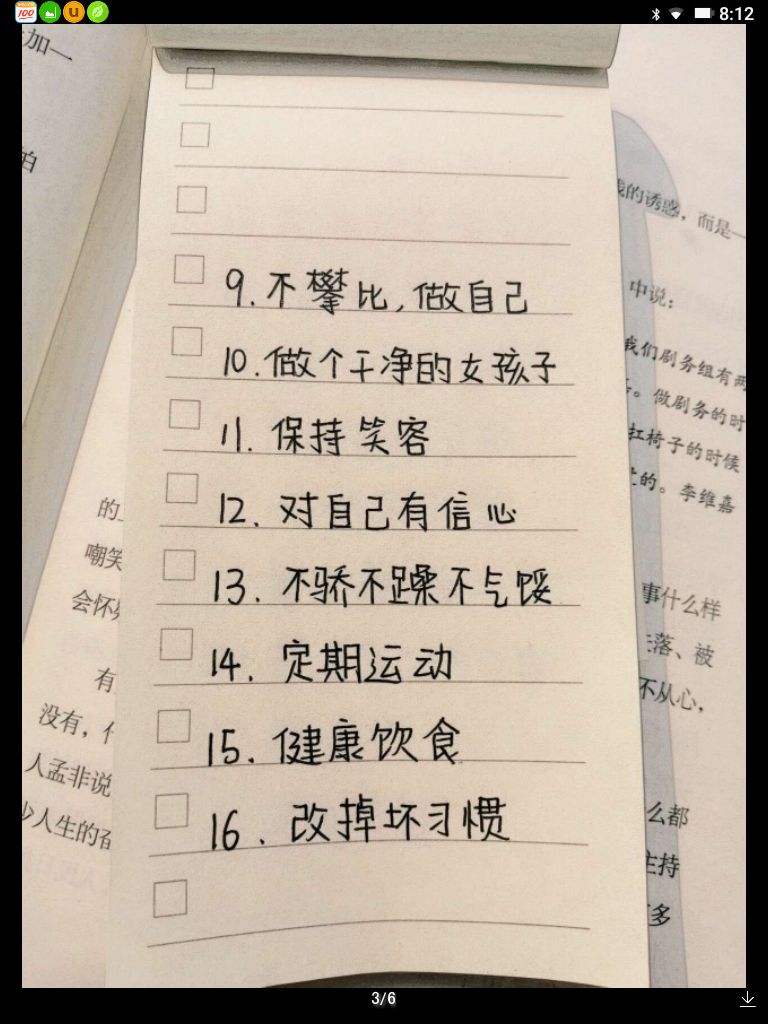 100
u
8:12
加一
的诱惑，而是一
中说：
我们剧务组有两
。做剧务的时
扛椅子的时候
的。李维嘉
9. 不攀比,做自己
10. 做个干净的女孩子
11. 保持笑容
12. 对自己有信心
13. 不骄不躁不气馁
14. 定期运动
15. 健康饮食
16. 改掉坏习惯
的
嘲笑
会怀
有
没有，
人孟非说
少人生的奋
事什么样
落、被
不从心，
么都
主持
多
3/6